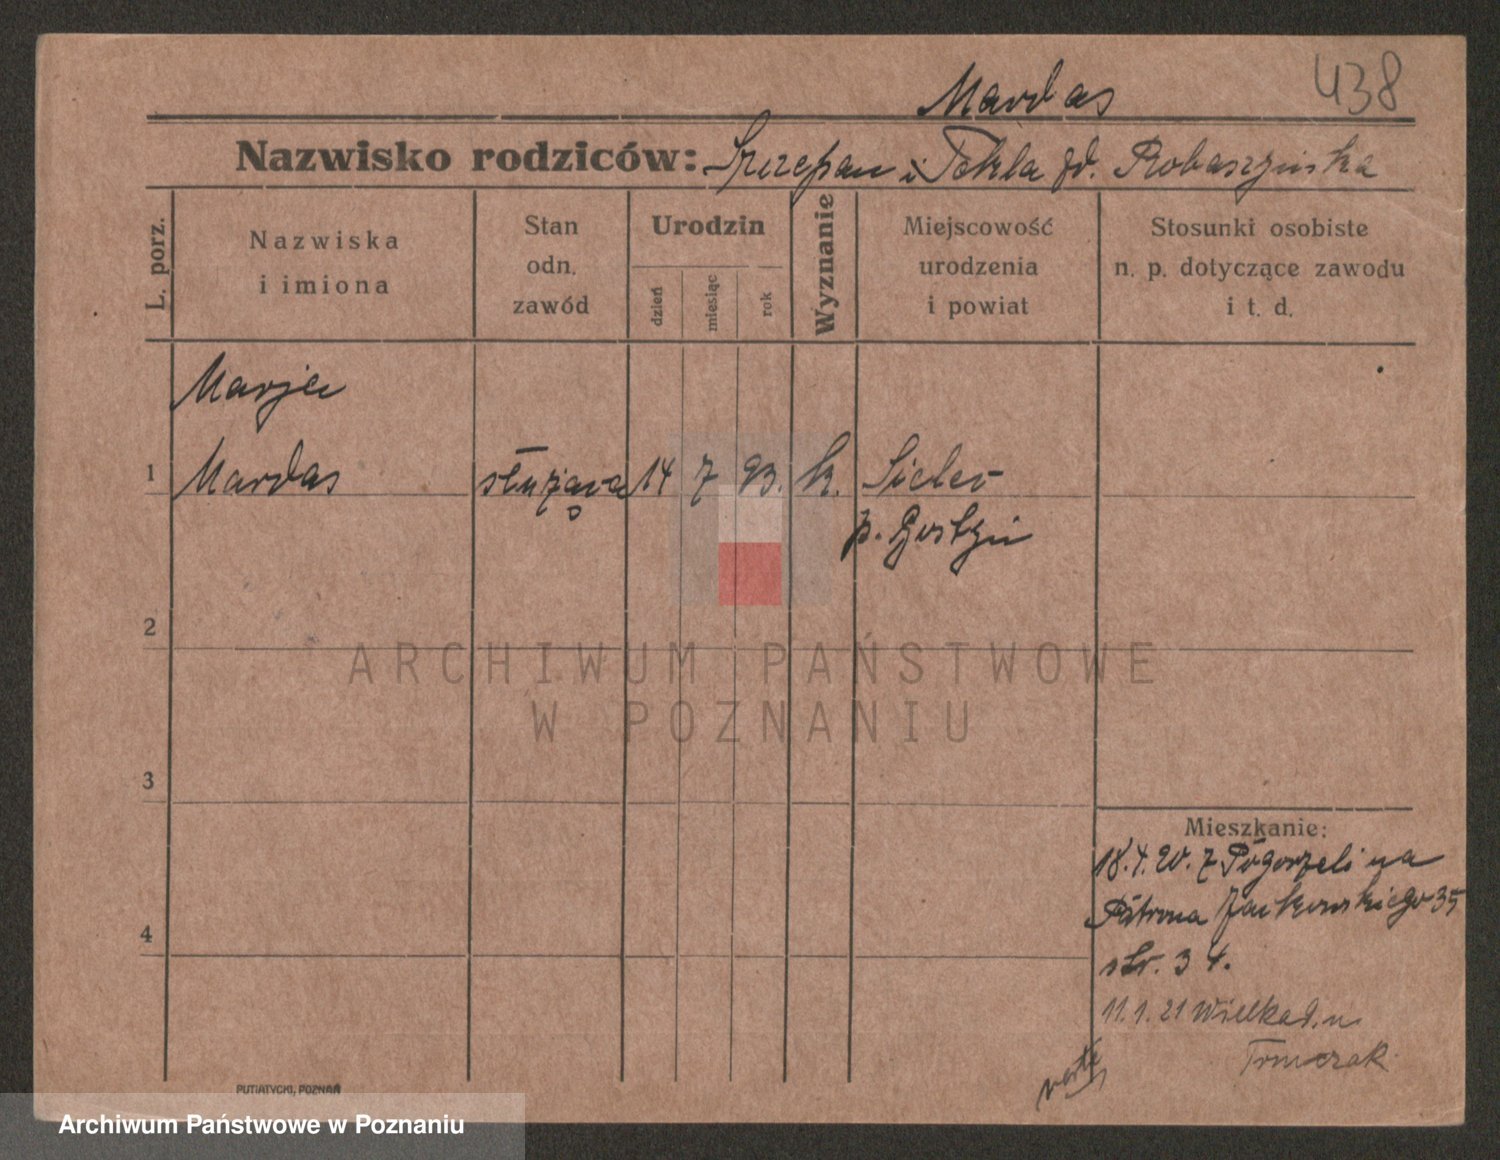 438
Mardas
Nazwisko rodziców: Szczepan i Tekla zd. Robaszyńska
L. porz.
Nazwiska i imiona
Stan odn. zawód
Urodzin
dzień
miesiąc
rok
Wyznanie
Miejscowość urodzenia i powiat
Stosunki osobiste n. p. dotyczące zawodu i t. d.
Marja
1 Mardas służąca 14 7 93. k. Sielec
p. Gostyń
2
3
4
Mieszkanie:
18.4.20. z Pogorzeli na
Patrona Jackowskiego 35
str. 34.
11.1.21 Wielka
verte
PUTIATYCKI, POZNAŃ
ARCHIWUM PAŃSTWOWE
W POZNANIU
Archiwum Państwowe w Poznaniu